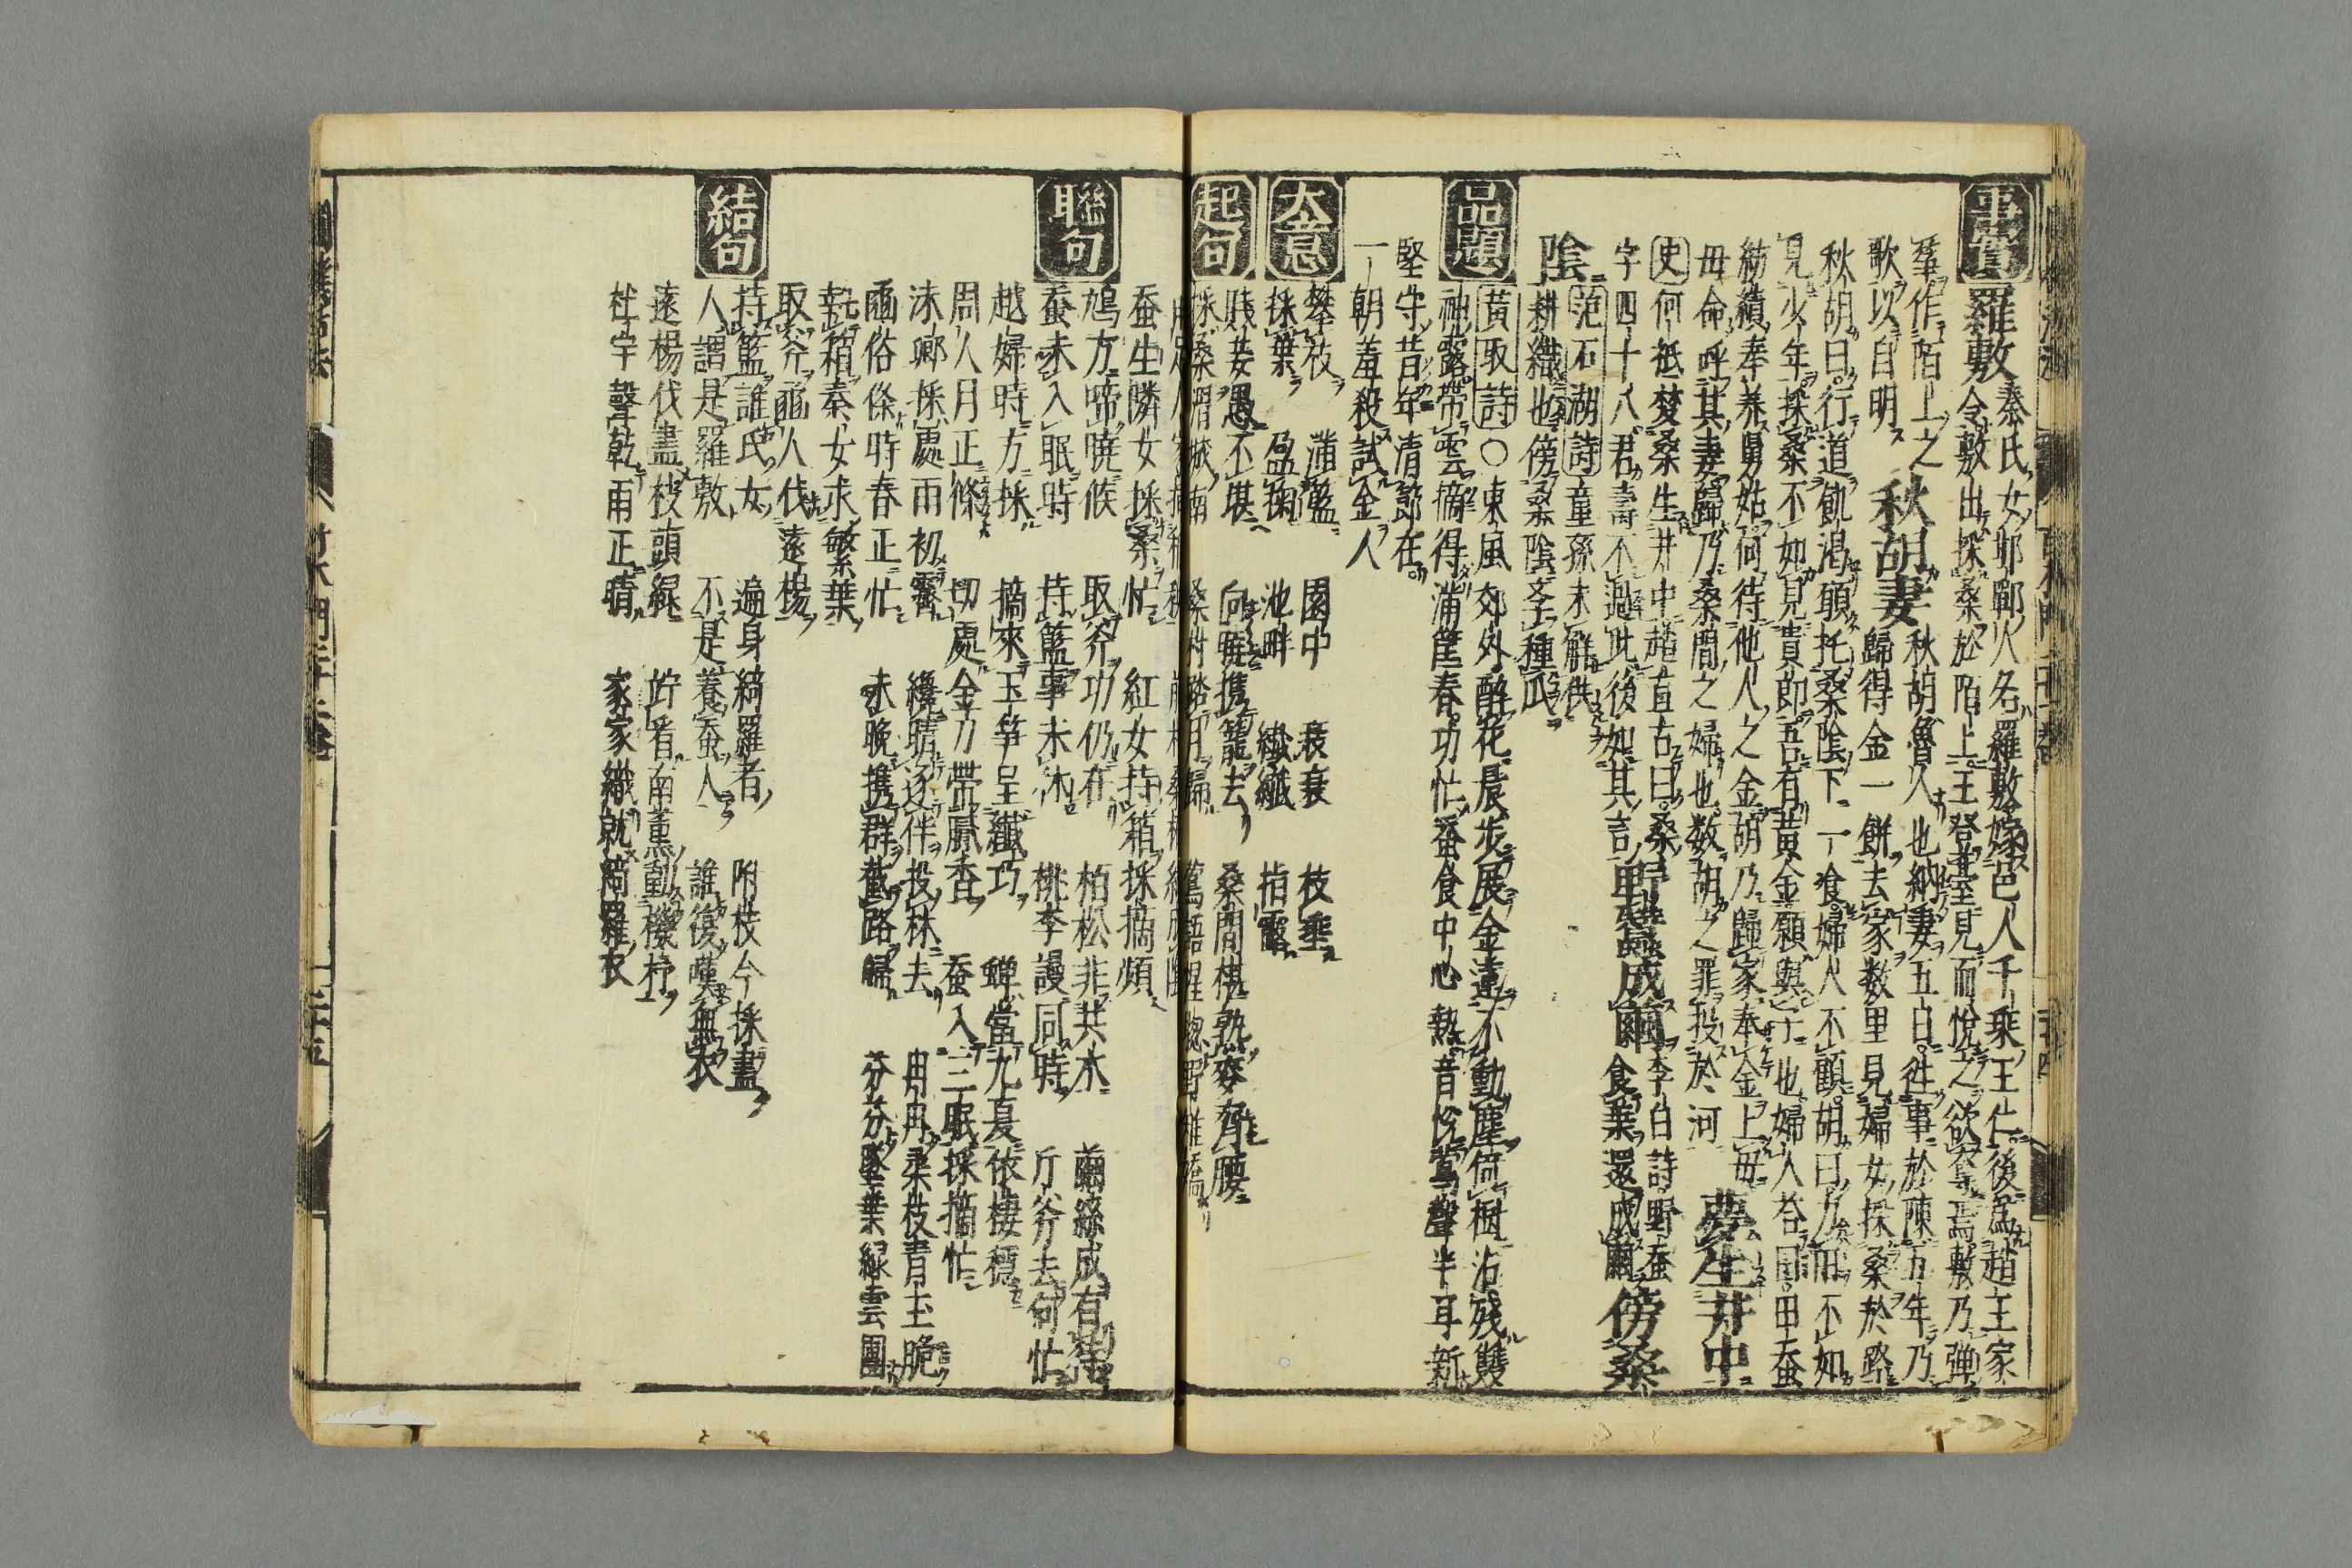 事實 羅敷 秦氏女邯鄲人名羅敷嫁邑人千乘王仁後爲趙王家
令敷出採桑於陌上王登臺見而悅之欲奪焉敷乃彈
箏作陌上之
歌以自明 秋胡妻 秋胡魯人也納妻五日徃事於陳五年乃
歸得金一餅去家数里見婦女採桑於路
秋胡曰行道飢渇願托桑陰下一飡婦人不顧胡曰力田不如
見少年採桑不如見貴郎吾有黃金願與子也婦人荅曰田蚕
紡績奉養舅姑何待他人之金胡乃歸家奉金上母
母命呼其妻歸乃桑間之婦也数胡之罪投於河 夢生井中
史 何祗梦桑生井中趙直占曰桑
字四十八君壽不過此後如其言 野蠶成繭 李白詩野蚕
食葉還成繭 傍桑
陰 范石湖詩 童孫未解供
耕織也傍桑陰孝種瓜
品題 黃取詩 ○東風郊外醉花晨步展金蓮不動塵何樹沾殘雙
袖露帶雲摘得滿筐春功忙蚕食中心熱音悅鶯聲半耳新
堅守昔年清節在
一朝羞殺試金人
大意 攀枝 滿籃 園中 衰衰 枝垂
採葉 盈掬 池畔 纎纎 指露
起句 賤妾愚不堪 向曉携籠去 桑間椹熟麥齊腰
蚕生隣女採桑忙 紅女持箱採摘頻
聯句 鳩方啼曉候 取斧功仍在 柏松非共木 繭絲成有緒
蚕未入眠時 持籃事未休 桃李謾同時 斤斧去何忙
越婦時方採 摘來玉筍呈纖巧 蟬當九夏依棲穩
周人月正條 切處金刀帶膩香 蚕入三眠採摘忙
沬鄉採處雨初霽 纔晴逐伴投林去 冉冉柔枝青玉脆
豳俗條時春正忙 未晚携群截路歸 芬芬墜葉緑雲團
執箱秦女求繁葉
取斧豳人伐遠楊
結句 持籃誰氏女 遍身綺羅者 附枝今採盡
人謂是羅敷 不是養蚕人 誰復嘆無衣
遠楊伐盡枝頭緑 竚看南薫動機杼
杜宇聲乾雨正晴 家家織就綺羅衣